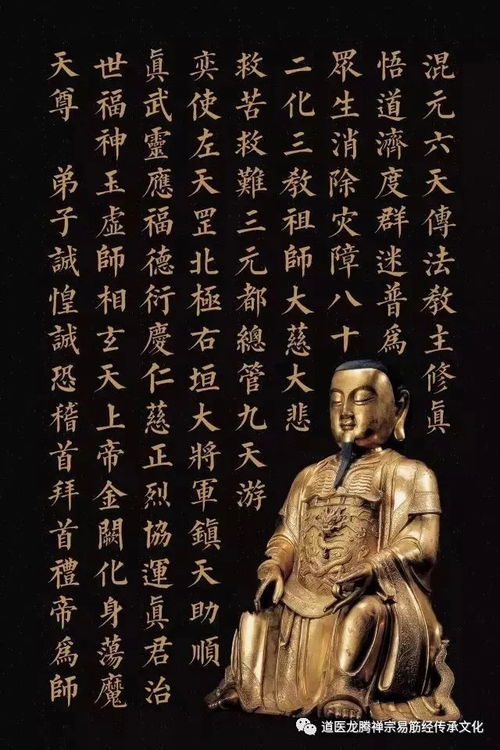 混元六天傳法教主修眞
悟道濟度群迷普爲
眾生消除灾障八十
二化三教祖師大慈大悲
救苦救難三元都總管九天游
奕使左天罡北極右垣大將軍鎮天助順
眞武靈應福德衍慶仁慈正烈協運眞君治
世福神玉虛師相玄天上帝金闕化身蕩魔
天尊 弟子誠惶誠恐稽首拜首禮帝爲師
道医龙腾禅宗易筋经传承文化